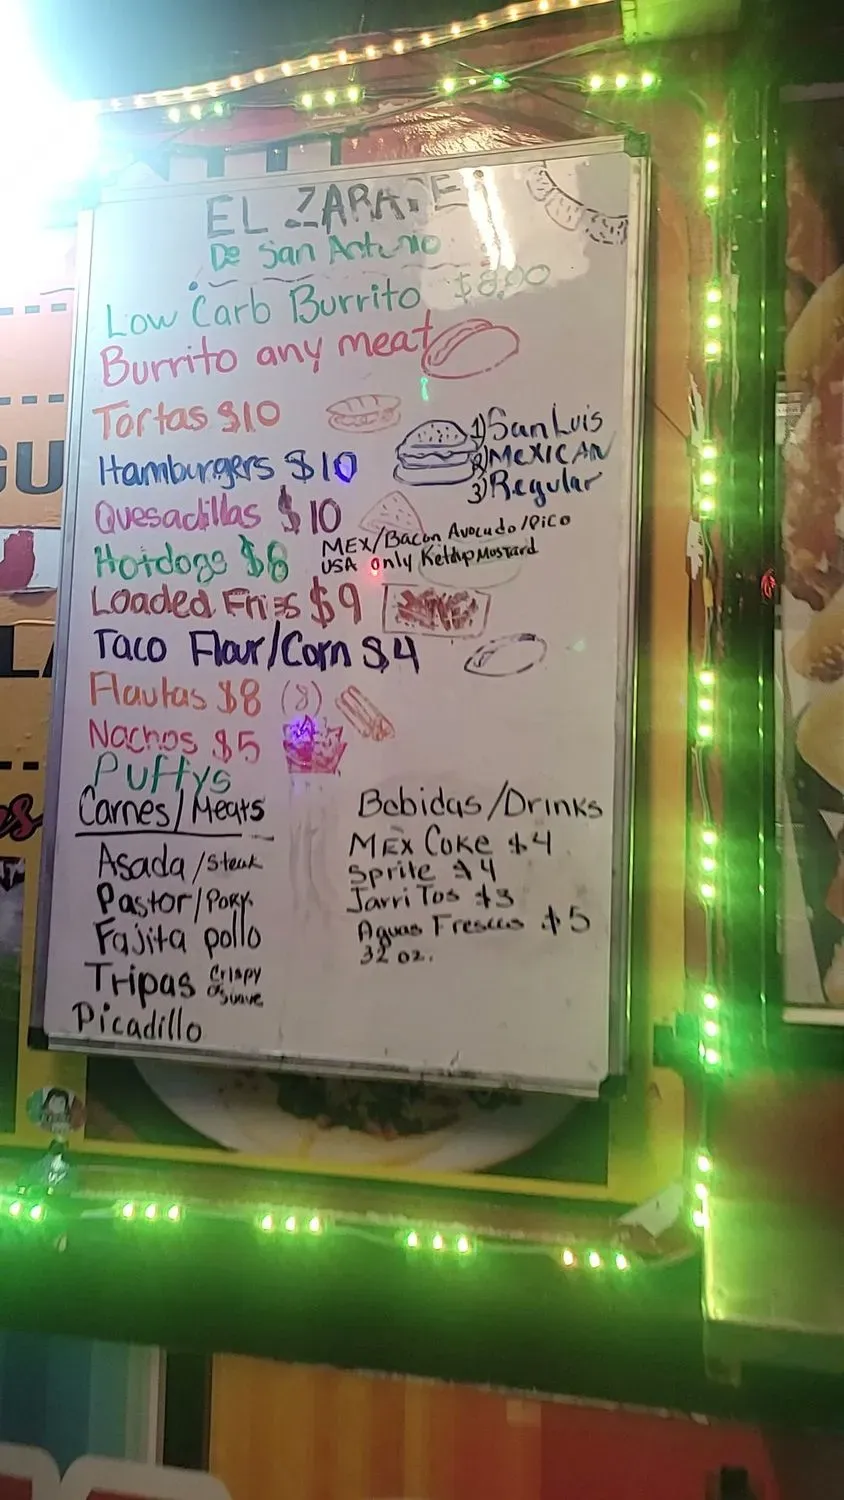 EL ZARAPE
De San Antonio
Low Carb Burrito $8.00
Burrito any meat
Tortas $10
Hamburgers $10
1) San Luis
2) MEXICAN
3) Regular
Quesadillas $10
Hotdogs $6
MEX/Bacon Avocado/Pico
USA only Ketchup Mustard
Loaded Fries $9
Taco Flour/Corn $4
Flautas $8 (8)
Nachos $5
Puffys
Carnes/Meats
Asada/Steak
Pastor/Pork
Fajita pollo
Tripas Crispy
o Suave
Picadillo
Bebidas/Drinks
MEX Coke $4
Sprite $4
Jarritos $3
Aguas Frescas $5
32 oz.